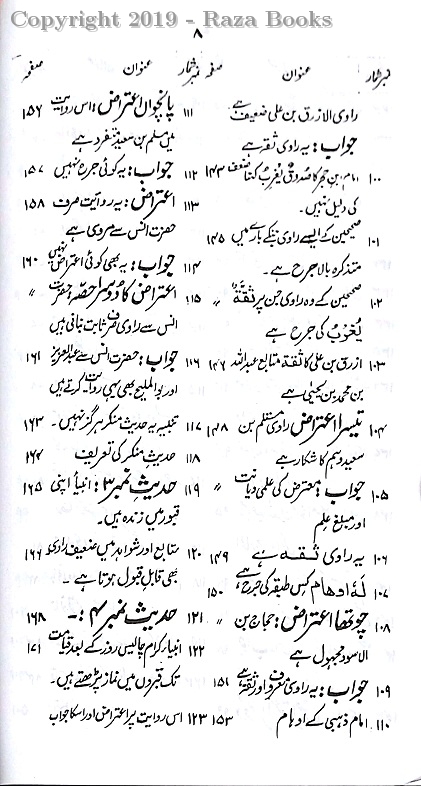 Copyright 2019 - Raza Books
۸
نمبر شمار عنوان صفحہ
راوی الازرق بن علی ضعیف ہے
جواب: یہ راوی ثقہ ہے
۱۰۰ امام ابن حجر کا صدوق یغرب کہنا ضعف ۱۴۳
کی دلیل نہیں۔
۱۰۱ صحیحین کے ایسے راوی جنکے بارے میں ۱۴۵
متذکرہ بالا جرح ہے۔
۱۰۲ صحیحین کے وہ راوی جن پر ثقۃ "
یُغْرِبُ کی جرح ہے
۱۰۳ ازرق بن علی کا ثقۃ متابع عبداللہ ۱۴۶
بن محمد بن یحییٰ ہے
۱۰۴ تیسرا اعتراض راوی مستلم بن ۱۴۸
سعید وہم کا شکار ہے
۱۰۵ جواب: معترض کی علمی دیانت "
اور مبلغ علم
۱۰۶ یہ راوی ثقہ ہے ۱۴۹
۱۰۷ لہٗ اوھام کس طبقہ کی جرح ہے ۱۵۰
۱۰۸ چوتھا اعتراض: حجاج بن "
الاسود مجہول ہے
۱۰۹ جواب: یہ راوی معروف اور ثقہ ہے ۱۵۱
۱۱۰ امام ذہبی کے اوہام ۱۵۳
نمبر شمار عنوان صفحہ
۱۱۱ پانچواں اعتراض: اس روایت ۱۵۶
میں مسلم بن سعید متفرد ہے
۱۱۲ جواب: یہ کوئی جرح نہیں ۱۵۷
۱۱۳ اعتراض: یہ روایت صرف ۱۵۸
حضرت انس سے مروی ہے
۱۱۴ جواب: یہ بھی کوئی اعتراض نہیں ۱۶۰
۱۱۵ اعتراض کا دوسرا حصہ: حضرت "
انس سے راوی صرف ثابت بنانی ہیں
۱۱۶ جواب: حضرت انس سے عبدالعزیز ۱۶۱
اور بوالملیح بھی یہی روایت کرتے ہیں
۱۱۷ تنبیہ یہ حدیث منکر ہرگز نہیں۔ ۱۶۳
۱۱۸ حدیث منکر کی تعریف ۱۶۴
۱۱۹ حدیث نمبر ۳: انبیأ اپنی ۱۶۵
قبور میں زندہ ہیں۔
۱۲۰ متابع اور شواہد میں ضعیف راوی ۱۶۶
بھی قابل قبول ہوتا ہے۔
۱۲۱ حدیث نمبر ۴:- ۱۶۸
۱۲۲ انبیاء کرام چالیس روز کے بعد قیامت ۱۷۱
تک قبروں میں نماز پڑھتے ہیں۔
۱۲۳ اس روایت پر اعتراض اور اسکا جواب